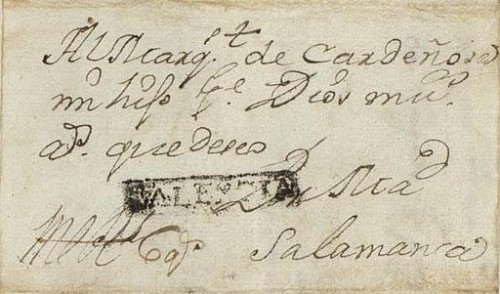 Al Marq.t de Cardeñosa
mi hijo g.e Dios mu.s
a.s que deseo
VALENCIA
Salamanca